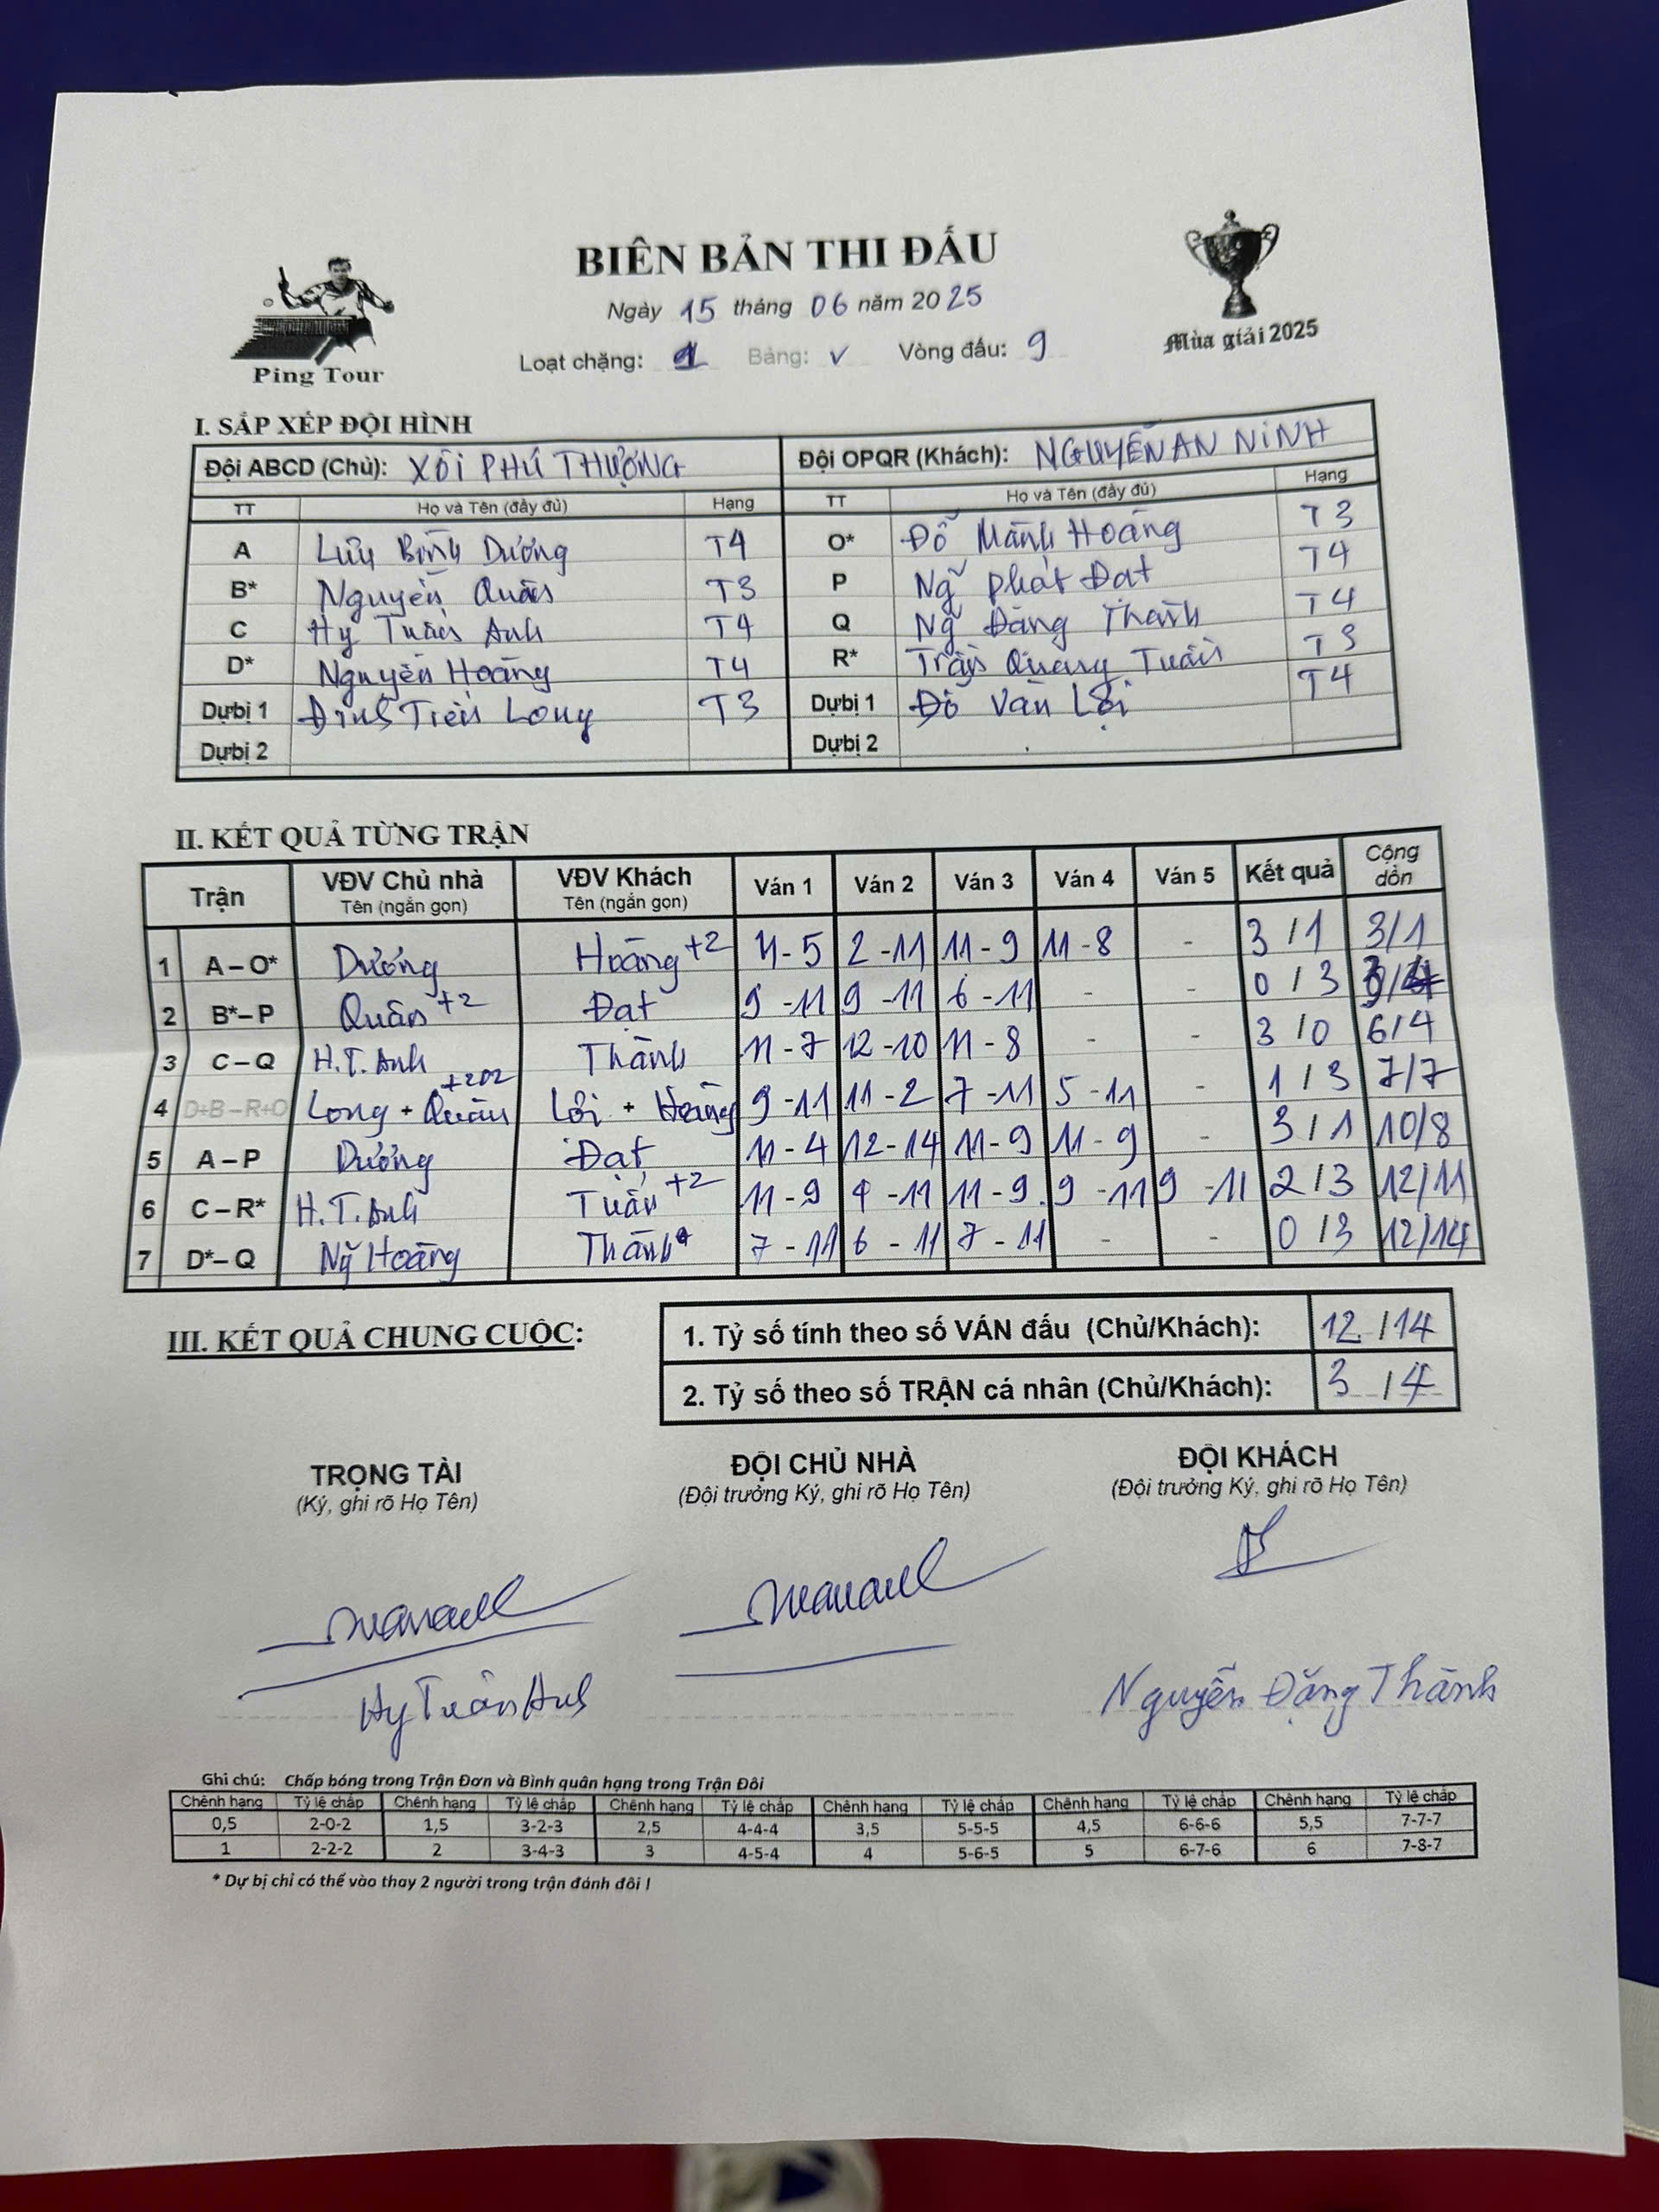 BIÊN BẢN THI ĐẤU
Ngày 15 tháng 06 năm 2025
Ping Tour
Loạt chặng: 1 Bảng: v Vòng đấu: 9
Mùa giải 2025
I. SẮP XẾP ĐỘI HÌNH
Đội ABCD (Chủ): XÔI PHÚ THƯỢNG Đội OPQR (Khách): NGUYỄN AN NINH
TT Họ và Tên (đầy đủ) Hạng TT Họ và Tên (đầy đủ) Hạng
A Lưu Bình Dương T4 O* Đỗ Mạnh Hoàng T3
B* Nguyễn Quân T3 P Ng̃ phát Đạt T4
C Hy Tuấn Anh T4 Q Ng̃ Đăng Thành T4
D* Nguyễn Hoàng T4 R* Trần Quang Tuấn T3
Dự bị 1 Đinh Tiến Long T3 Dự bị 1 Đỗ Văn Lợi T4
Dự bị 2 Dự bị 2
II. KẾT QUẢ TỪNG TRẬN
Trận VĐV Chủ nhà Tên (ngắn gọn) VĐV Khách Tên (ngắn gọn) Ván 1 Ván 2 Ván 3 Ván 4 Ván 5 Kết quả Cộng dồn
1 A – O* Dương Hoàng +2 11 - 5 2 - 11 11 - 9 11 - 8 - 3 / 1 3/1
2 B* – P Quân +2 Đạt 9 - 11 9 - 11 6 - 11 - - 0 / 3 3/4
3 C – Q H.T. Anh Thành 11 - 7 12 - 10 11 - 8 - - 3 / 0 6/4
4 D+B – R+O Long + Quân +202 Lợi + Hoàng 9 - 11 11 - 2 7 - 11 5 - 11 - 1 / 3 7/7
5 A – P Dương Đạt 11 - 4 12 - 14 11 - 9 11 - 9 - 3 / 1 10/8
6 C – R* H.T. Anh Tuấn +2 11 - 9 9 - 11 11 - 9 9 - 11 9 - 11 2 / 3 12/11
7 D* – Q Ng̃ Hoàng Thành 7 - 11 6 - 11 7 - 11 - - 0 / 3 12/14
III. KẾT QUẢ CHUNG CUỘC:
1. Tỷ số tính theo số VÁN đấu (Chủ/Khách): 12 / 14
2. Tỷ số theo số TRẬN cá nhân (Chủ/Khách): 3 / 4
TRỌNG TÀI ĐỘI CHỦ NHÀ ĐỘI KHÁCH
(Ký, ghi rõ Họ Tên) (Đội trưởng Ký, ghi rõ Họ Tên) (Đội trưởng Ký, ghi rõ Họ Tên)
Hy Tuấn Anh Nguyễn Đăng Thành
Ghi chú: Chấp bóng trong Trận Đơn và Bình quân hạng trong Trận Đôi
Chênh hạng Tỷ lệ chấp Chênh hạng Tỷ lệ chấp Chênh hạng Tỷ lệ chấp Chênh hạng Tỷ lệ chấp Chênh hạng Tỷ lệ chấp Chênh hạng Tỷ lệ chấp
0,5 2-0-2 1,5 3-2-3 2,5 4-4-4 3,5 5-5-5 4,5 6-6-6 5,5 7-7-7
1 2-2-2 2 3-4-3 3 4-5-4 4 5-6-5 5 6-7-6 6 7-8-7
* Dự bị chỉ có thể vào thay 2 người trong trận đánh đôi !